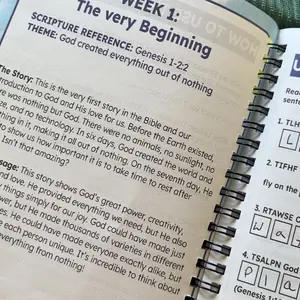 WEEK 1:
The very Beginning
SCRIPTURE REFERENCE: Genesis 1-2:2
THEME: God created everything out of nothing
The Story: This is the very first story in the Bible and our
roduction to God and His love for us. Before the Earth existed,
re was nothing but God. There were no animals, no sunlight, no
ze, and no technology. In six days, God created the world and
thing in it, making it all out of nothing. On the seventh day, He
to show us how important it is to take time to rest after
Isn't that amazing?
sage: This story shows God's great power, creativity,
nd love. He provided everything we need, but He also
things simply for our joy. God could have made just
wer, but He made thousands of varieties in different
es. He could have made everyone exactly alike, but
e each person unique. It's incredible to think about
verything from nothing!
HOW TO US
Read
senten
1. TLH
L
2. TIFHF
fly on the
3. RTAWSE
w a
4. TSALPN God
P l a
(Genesis 1:1